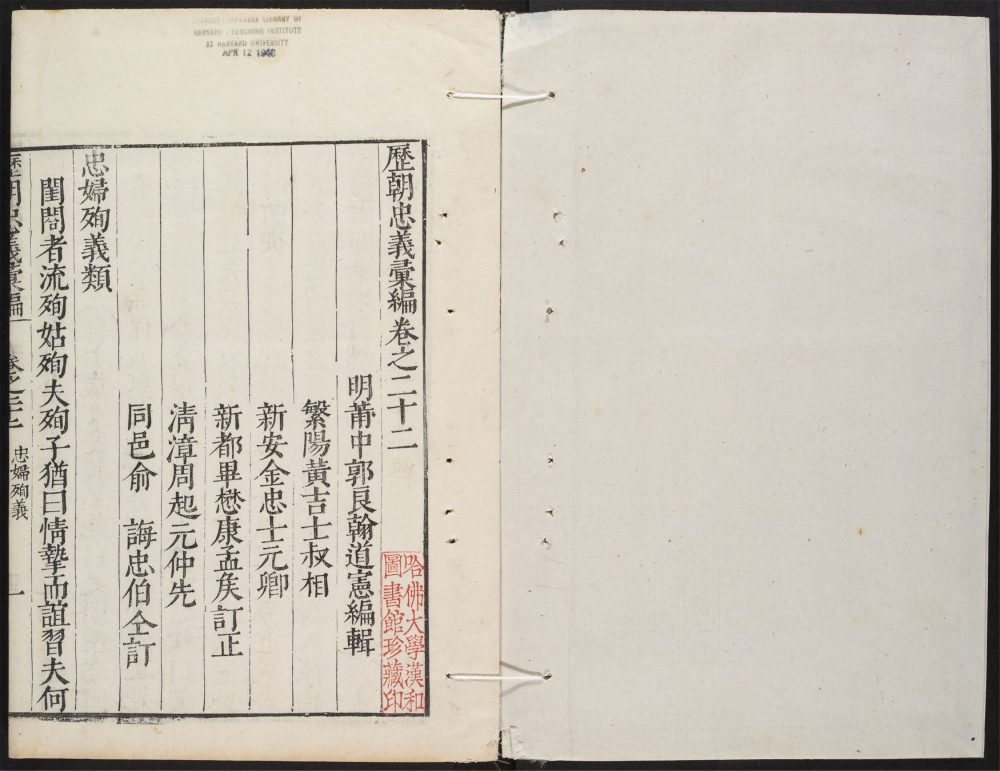 CHINESE - JAPANESE LIBRARY OF
HARVARD - YENCHING INSTITUTE
AT HARVARD UNIVERSITY
APR 12 1940
歷朝忠義彙編卷之二十二
明莆中郭良翰道憲編輯
繁陽黃吉士叔相
新安金忠士元卿
新都畢懋康孟矦訂正
淸漳周起元仲先
同邑俞　誨忠伯仝訂
忠婦殉義類
閨閤者流殉姑殉夫殉子猶曰情摯而誼習夫何
歷朝忠義彙編
卷之二十二
忠婦殉義
一
哈佛大學漢和
圖書館珍藏印